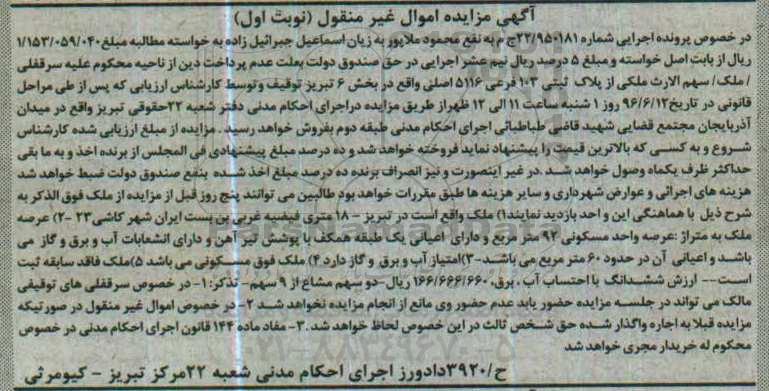 آگهی مزایده اموال غیر منقول (نوبت اول)
در خصوص پرونده اجرایی شماره ۲۲/۹۵۰۱۸۱ج م به نفع محمود ملاپور به زیان اسماعیل جبرائیل زاده به خواسته مطالبه مبلغ ۱/۱۵۳/۰۵۹/۰۴۰
ریال از بابت اصل خواسته و مبلغ ۵ درصد ریال نیم عشر اجرایی در حق صندوق دولت بعلت عدم پرداخت دین از ناحیه محکوم علیه سرقفلی
/ ملک/ سهم الارث ملکی از پلاک ثبتی ۱۰۳ فرعی ۵۱۱۶ اصلی واقع در بخش ۶ تبریز توقیف و توسط کارشناس ارزیابی که پس از طی مراحل
قانونی در تاریخ ۹۶/۶/۱۲ روز ۱ شنبه ساعت ۱۱ الی ۱۲ ظهر از طریق مزایده در اجرای احکام مدنی دفتر شعبه ۲۲حقوقی تبریز واقع در میدان
آذربایجان مجتمع قضایی شهید قاضی طباطبائی اجرای احکام مدنی طبقه دوم بفروش خواهد رسید . مزایده از مبلغ ارزیابی شده کارشناس
شروع و به کسی که بالاترین قیمت را پیشنهاد نماید فروخته خواهد شد و ده درصد مبلغ پیشنهادی فی المجلس از برنده اخذ و به ما بقی
حداکثر ظرف یکماه وصول خواهد شد .در غیر اینصورت و نیز انصراف برنده ده درصد مبلغ اخذ شده بنفع صندوق دولت ضبط خواهد شد
هزینه های اجرائی و عوارض شهرداری و سایر هزینه ها طبق مقررات خواهد بود طالبین می توانند پنج روز قبل از مزایده از ملک فوق الذکر به
شرح ذیل با هماهنگی این و احد بازدید نمایند۱) ملک واقع است در تبریز – ۱۸ متری فیضیه غربی بن بست ایران شهر کاشی ۲۳ -۲) عرصه
ملک به متراژ :عرصه واحد مسکونی ۹۲ متر مربع و دارای اعیانی یک طبقه همکف با پوشش تیر آهن و دارای انشعابات آب و برق و گاز می
باشد و اعیانی آن در حدود ۶۰ متر مربع می باشد-۳)امتیاز آب و برق و گاز دارد ۴) ملک فوق مسکونی می باشد ۵)ملک فاقد سابقه ثبت
است-- ارزش ششدانگ با احتساب آب ، برق، ۱۶۶/۶۶۶/۶۶۰ ریال-دو سهم مشاع از ۹ سهم- تذکر: ۱- در خصوص سرقفلی های توقیفی
مالک می تواند در جلسه مزایده حضور یابد عدم حضور وی مانع از انجام مزایده نخواهد شد ۲- در خصوص اموال غیر منقول در صورتیکه
مزایده قبلا به اجاره واگذار شده حق شخص ثالث در این خصوص لحاظ خواهد شد .۳- مفاد ماده ۱۴۴ قانون اجرای احکام مدنی در خصوص
محکوم له خریدار مجری خواهد شد
ح/۳۹۲۰دادورز اجرای احکام مدنی شعبه ۲۲مرکز تبریز - کیومرثی